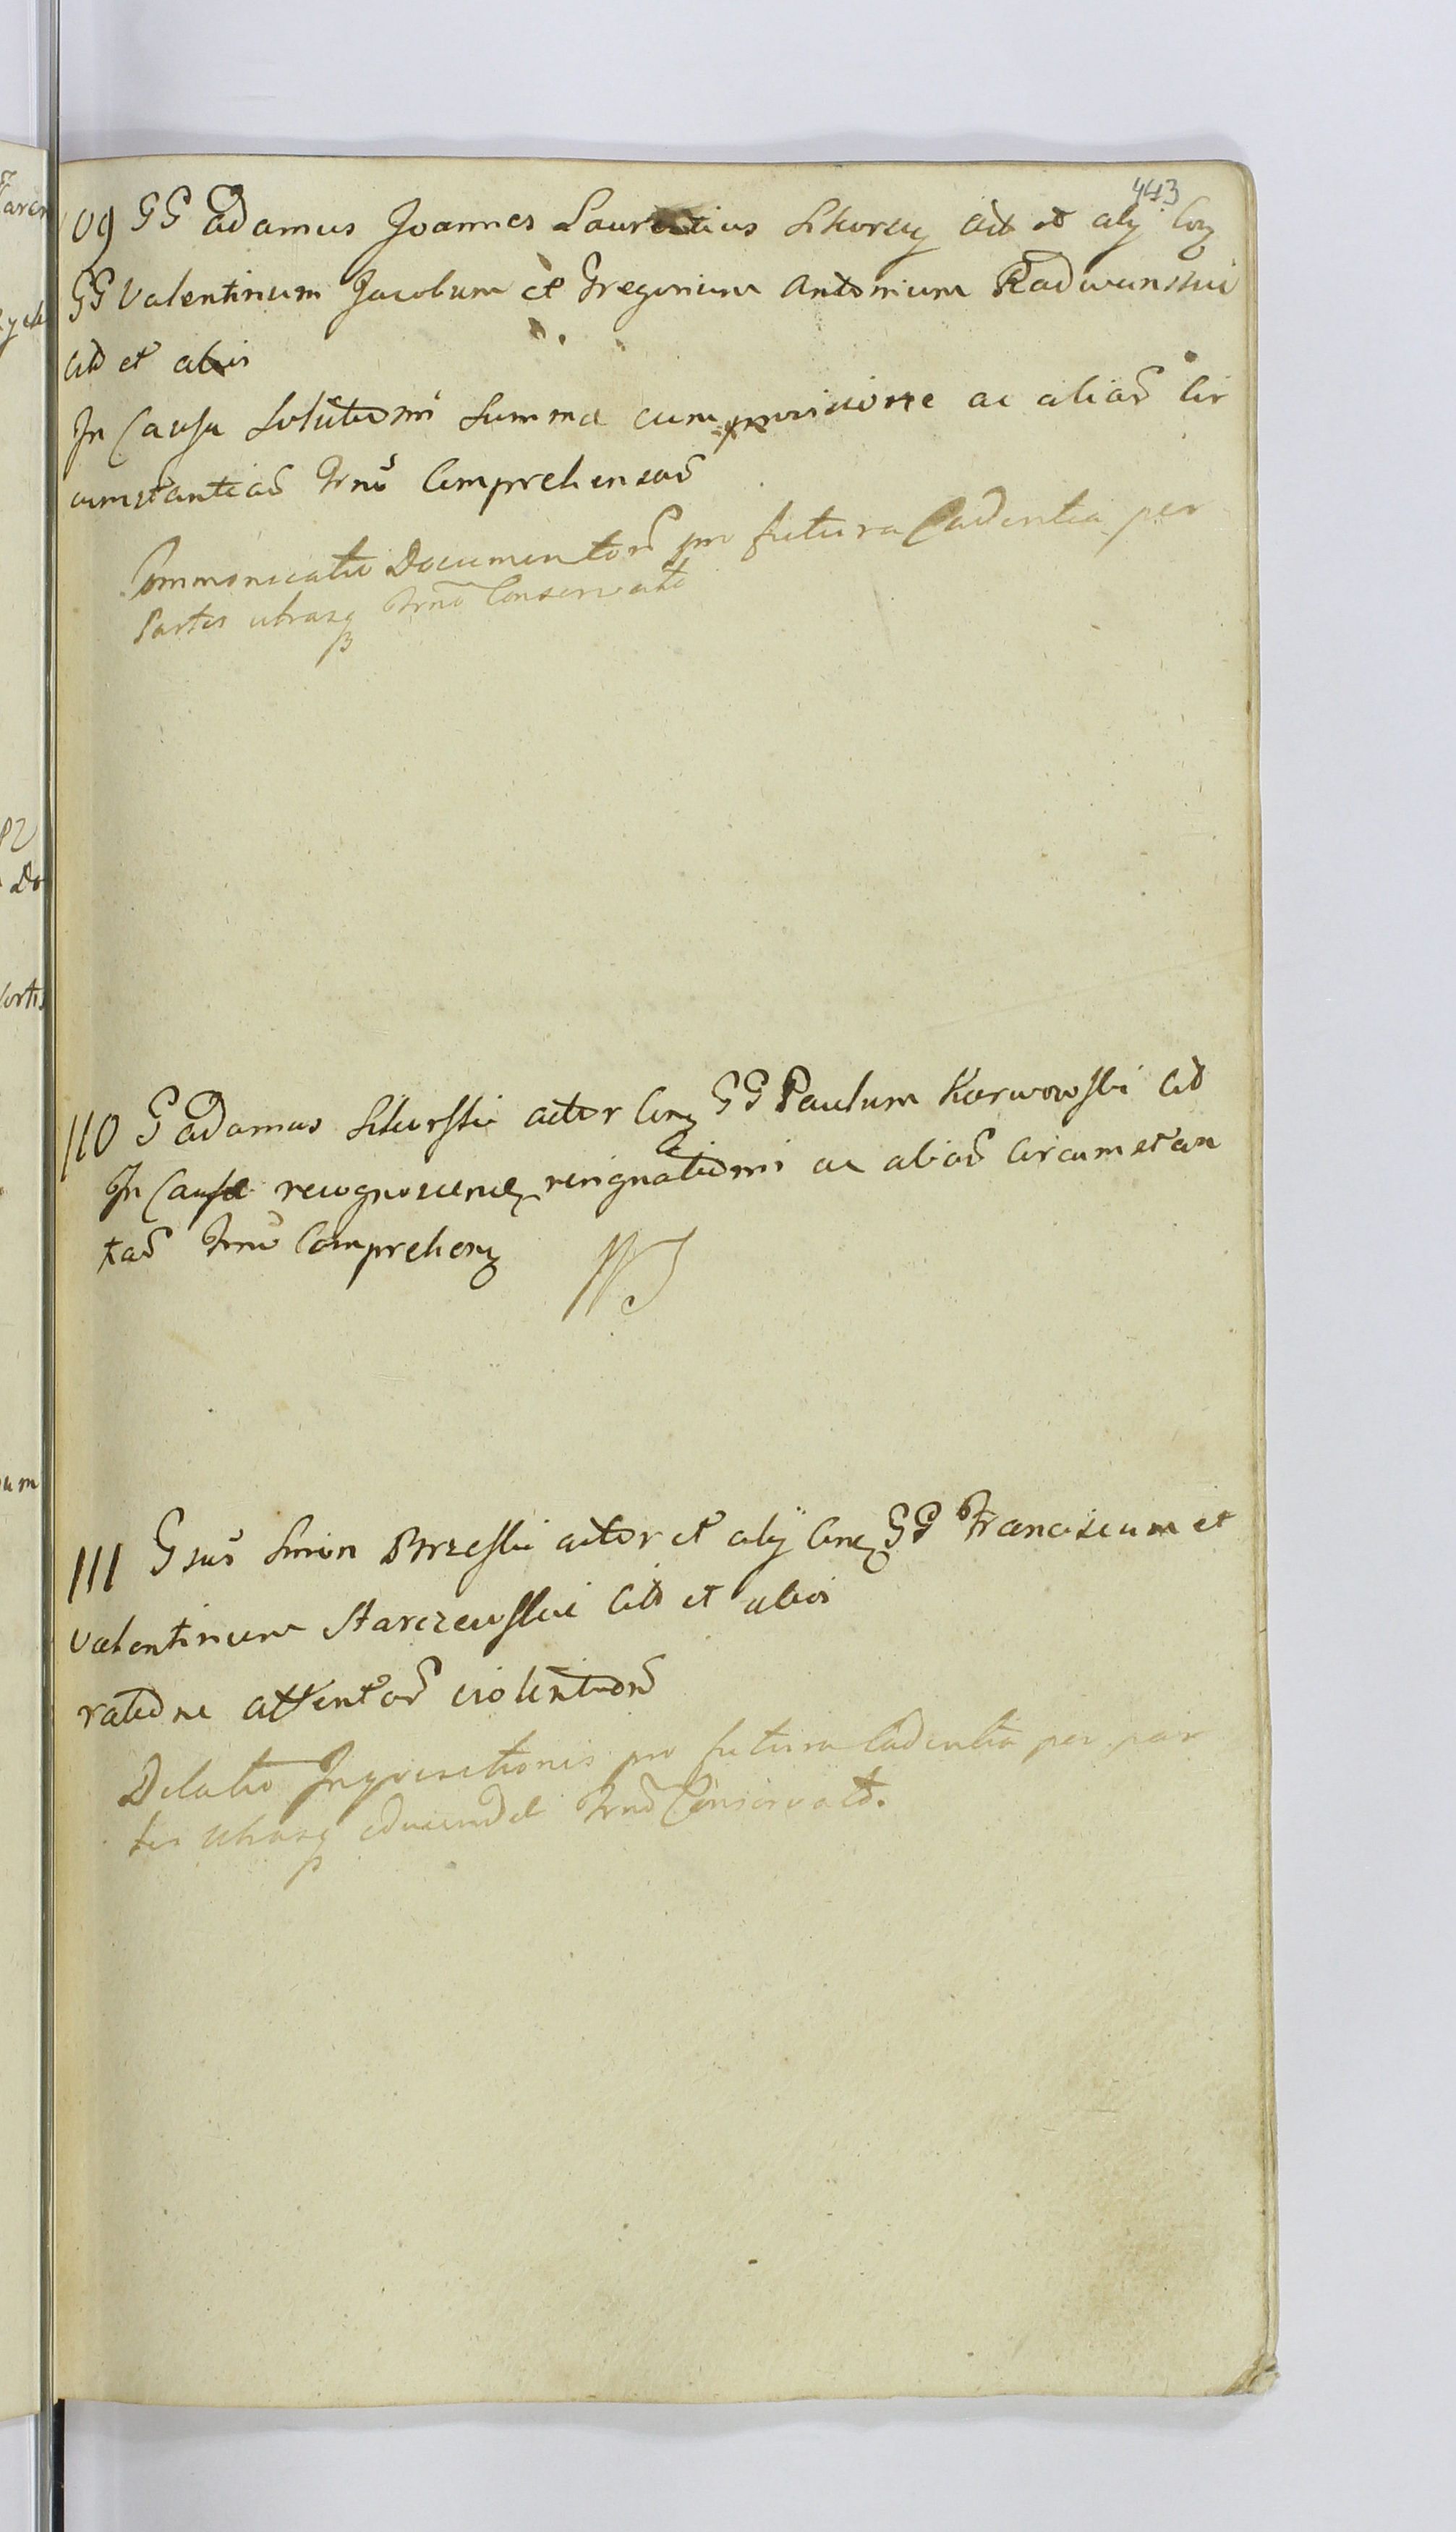 443
109 GG Adamus Joannes Laurentius Skorscy act et alij Con
GG Valentinum Jacobum et Gregorium Antonium Radwanskie
Citt et alios
In Causa Solutionis Summae cum provisione ac alias Cir
cumstantias Trno Comprehensas
Communicatio Documentor pro futura Cadentia per
Partes utrasq Trno Conservato
110 G Adamus Skorski actor Con GG Paulum Karwowski Citt
In Causa recognoscen resignationis ac alias Circumstan
tias Trno Comprehen
111 Gsus Simon Brzeski actor et alij Con GG Franciscum et
Valentinum Starczewskie Citt et alios
ratione attentas violentias
Dilatio Inquisitionis pro futura Cadentia per par
tes utrasq educendae Trno Conservato.